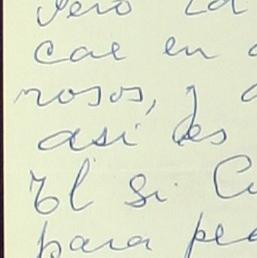 Pero la
cae en
rosos, y
asi des
El Sr. C
para pe